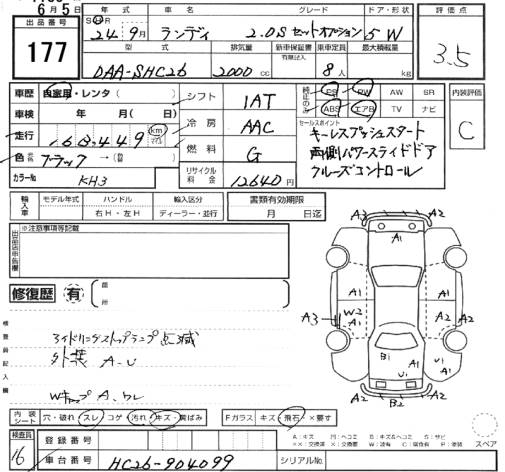 6月5日
出品番号
177
年式 車名 グレード ドア・形状
S H R
24年 9月 ランディ 2.0S セットオプション 5 W
型式 排気量 新車保証書 乗車定員 最大積載量
有無記入
DAA-SHC26 2000 cc 8人 kg
評価点
3.5
車歴 自家用・レンタ( )
車検 年 月( 日)
走行 km
色 ブラック →(替 )
カラーNo KH3
シフト 1AT
冷房 AAC
燃料 G
リサイクル料金 12640円
純正のみ PS PW AW SR
ABS エアB TV ナビ
セールスポイント
キーレスプッシュスタート
両側パワースライドドア
クルーズコントロール
内装評価
C
輸入車 モデル年式 ハンドル 輸入区分
右H・左H ディーラー・並行
書類有効期限
月 日迄
出品店申告欄
※注意事項等記載
修復歴 有 箇所
検査員記入欄
アイドリングストップランプ点滅
外装 A.U
Wキップ A.ワレ
A3 A2
A1
A2 A2
A1 A1
A3 W2 A1 A1
B1 U1
U1 A1
A2 B2 A2
内装シート 穴・破れ スレ コゲ 汚れ・キズ・黄ばみ
Fガラス キズ・飛石・×要す
A:キズ U:ヘコミ B:キズ&ヘコミ S:サビ
××:交換済 ×:要交換 W:波有 C:腐食有 P:塗装
スペア
検査員
16
登録番号
車台番号 HC26-904099
シリアルNo.